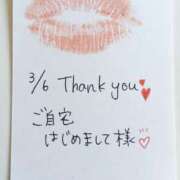 3/6 Thank you
ご自宅
はじめまして様♡